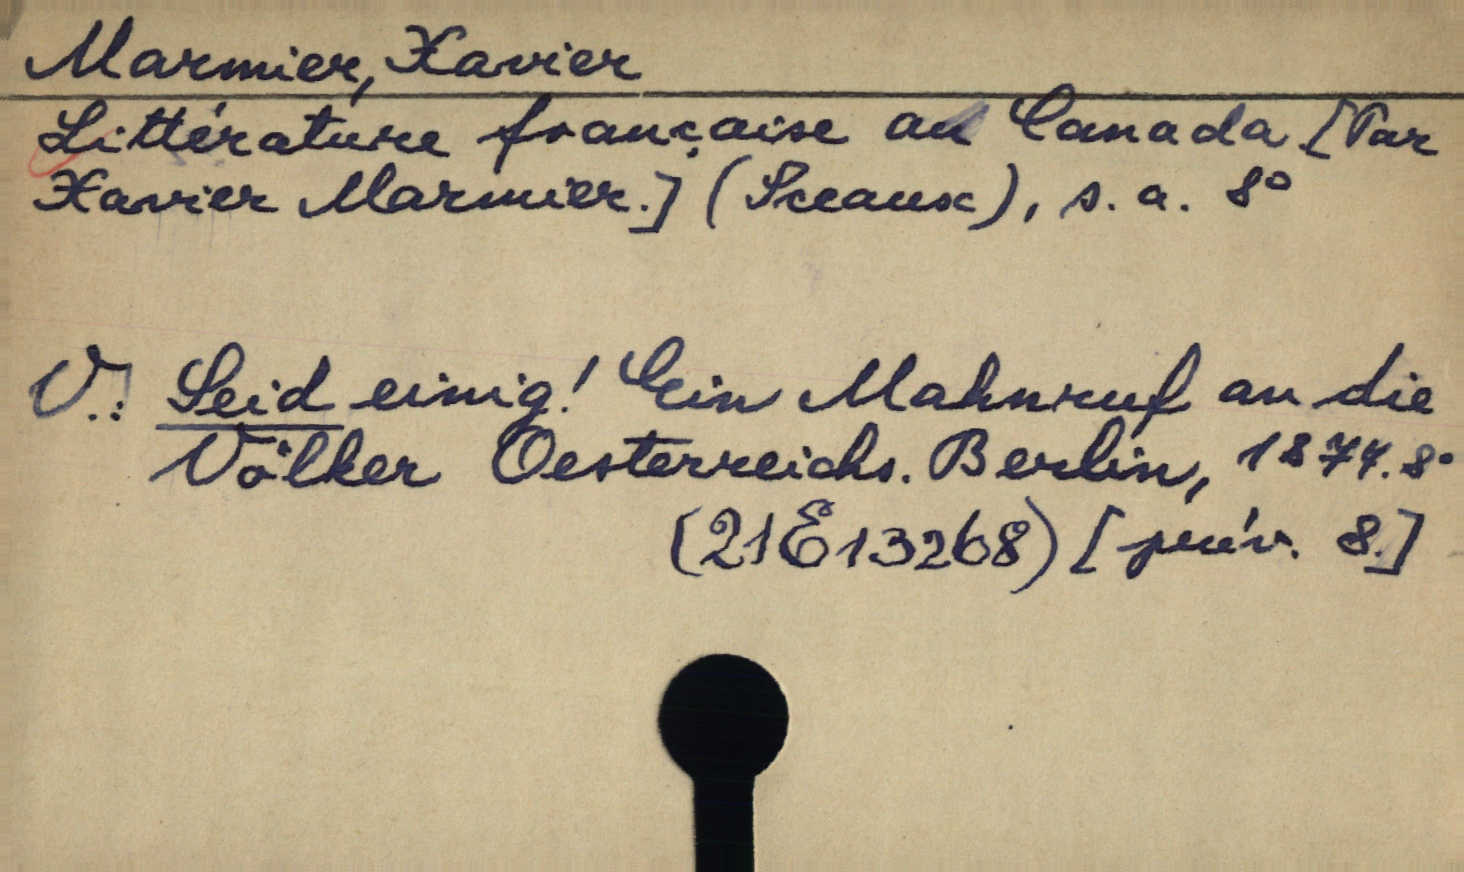 Marmier, Xavier
Littérature française au Canada [Par
Xavier Marmier.] (Sceaux), s. a. 8°
V.: Seid einig! Ein Mahnruf an die
Völker Oesterreichs. Berlin, 1874. 8°
(21E13268) [priv. 8.]